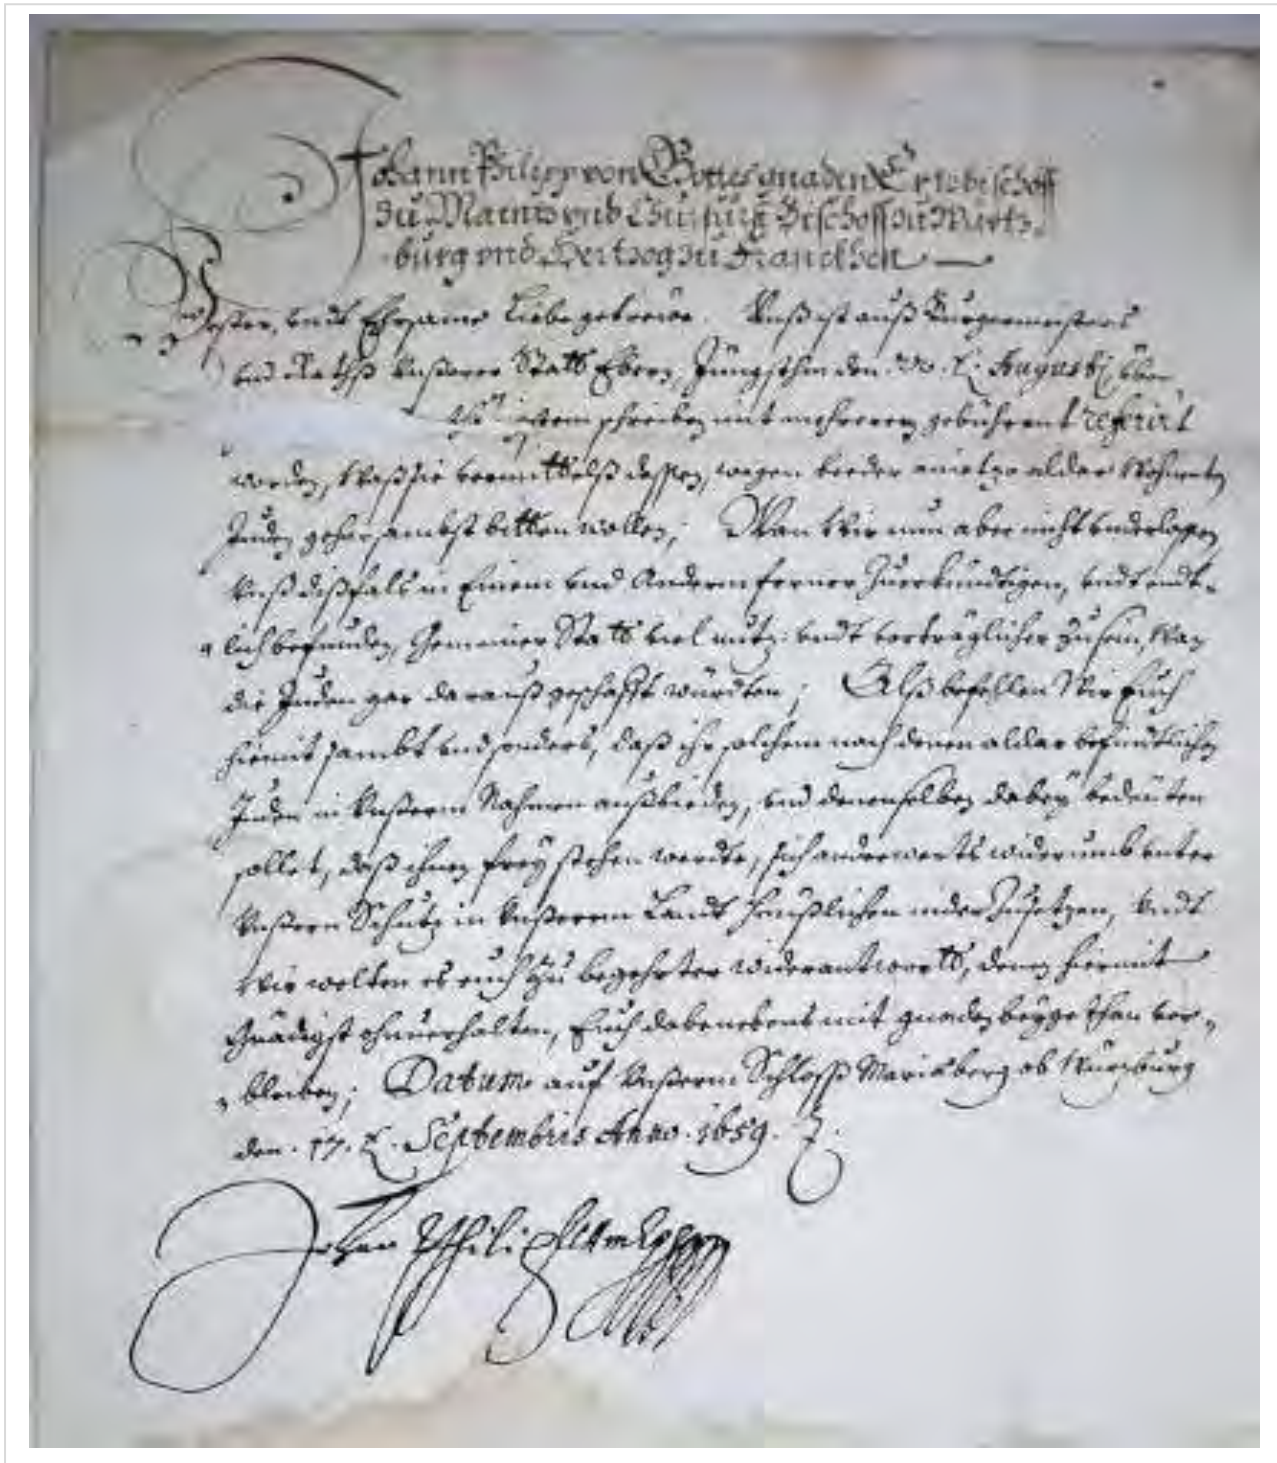 Johann Philipp von Gottes gnaden Ertzbischoff
zu Maintz vnd Churfürst Bischoff zu Würtz-
burg vnd Hertzog zu Franckhen
Vester, undt Ehrsame Liebe getreüe. Unß ist auß Burgermeisters
und Raths Unserer Statt Ebern, Jüngsthin den August
schreiben mit mehrerem gebührent referirt
worden, Waß sie vermittelst dessen, wegen beeder anietzo aldar Wohnenten
Juden gehorsambst bitten wollen; Wan Wir nun aber nicht underlassen
Unß dißfals in Einem und Anderm ferner Zuerkundtigen, undt endt-
lich befunden, Gemeiner Statt viel nutz: undt vorträglicher zu sein, Wan
die Juden gar darauß geschafft würdten; Alß befehlen Wir Euch
hiemit sambt und sonders, daß ihr solchem nach denen aldar befindtlichen
Juden in Unserm Nahmen außbieden, und denenselben dabey bedeuten
sollet, daß ihnen frey stehen werde, sich anderwerts widerumb unter
Unsern Schutz in Unserem Landt heußlichen nider Zusetzen, Undt
Wir wolten es euch zu begehrter widerantwortt, denen hiermit
Gnädigst ohnuerhalten, Euch dabenebens mit gnaden beygethan ver-
bleiben; Datum auf Unserm Schloß Marienberg ob Würzburg
den 17. Septembris Anno 1659.
Johan Philip